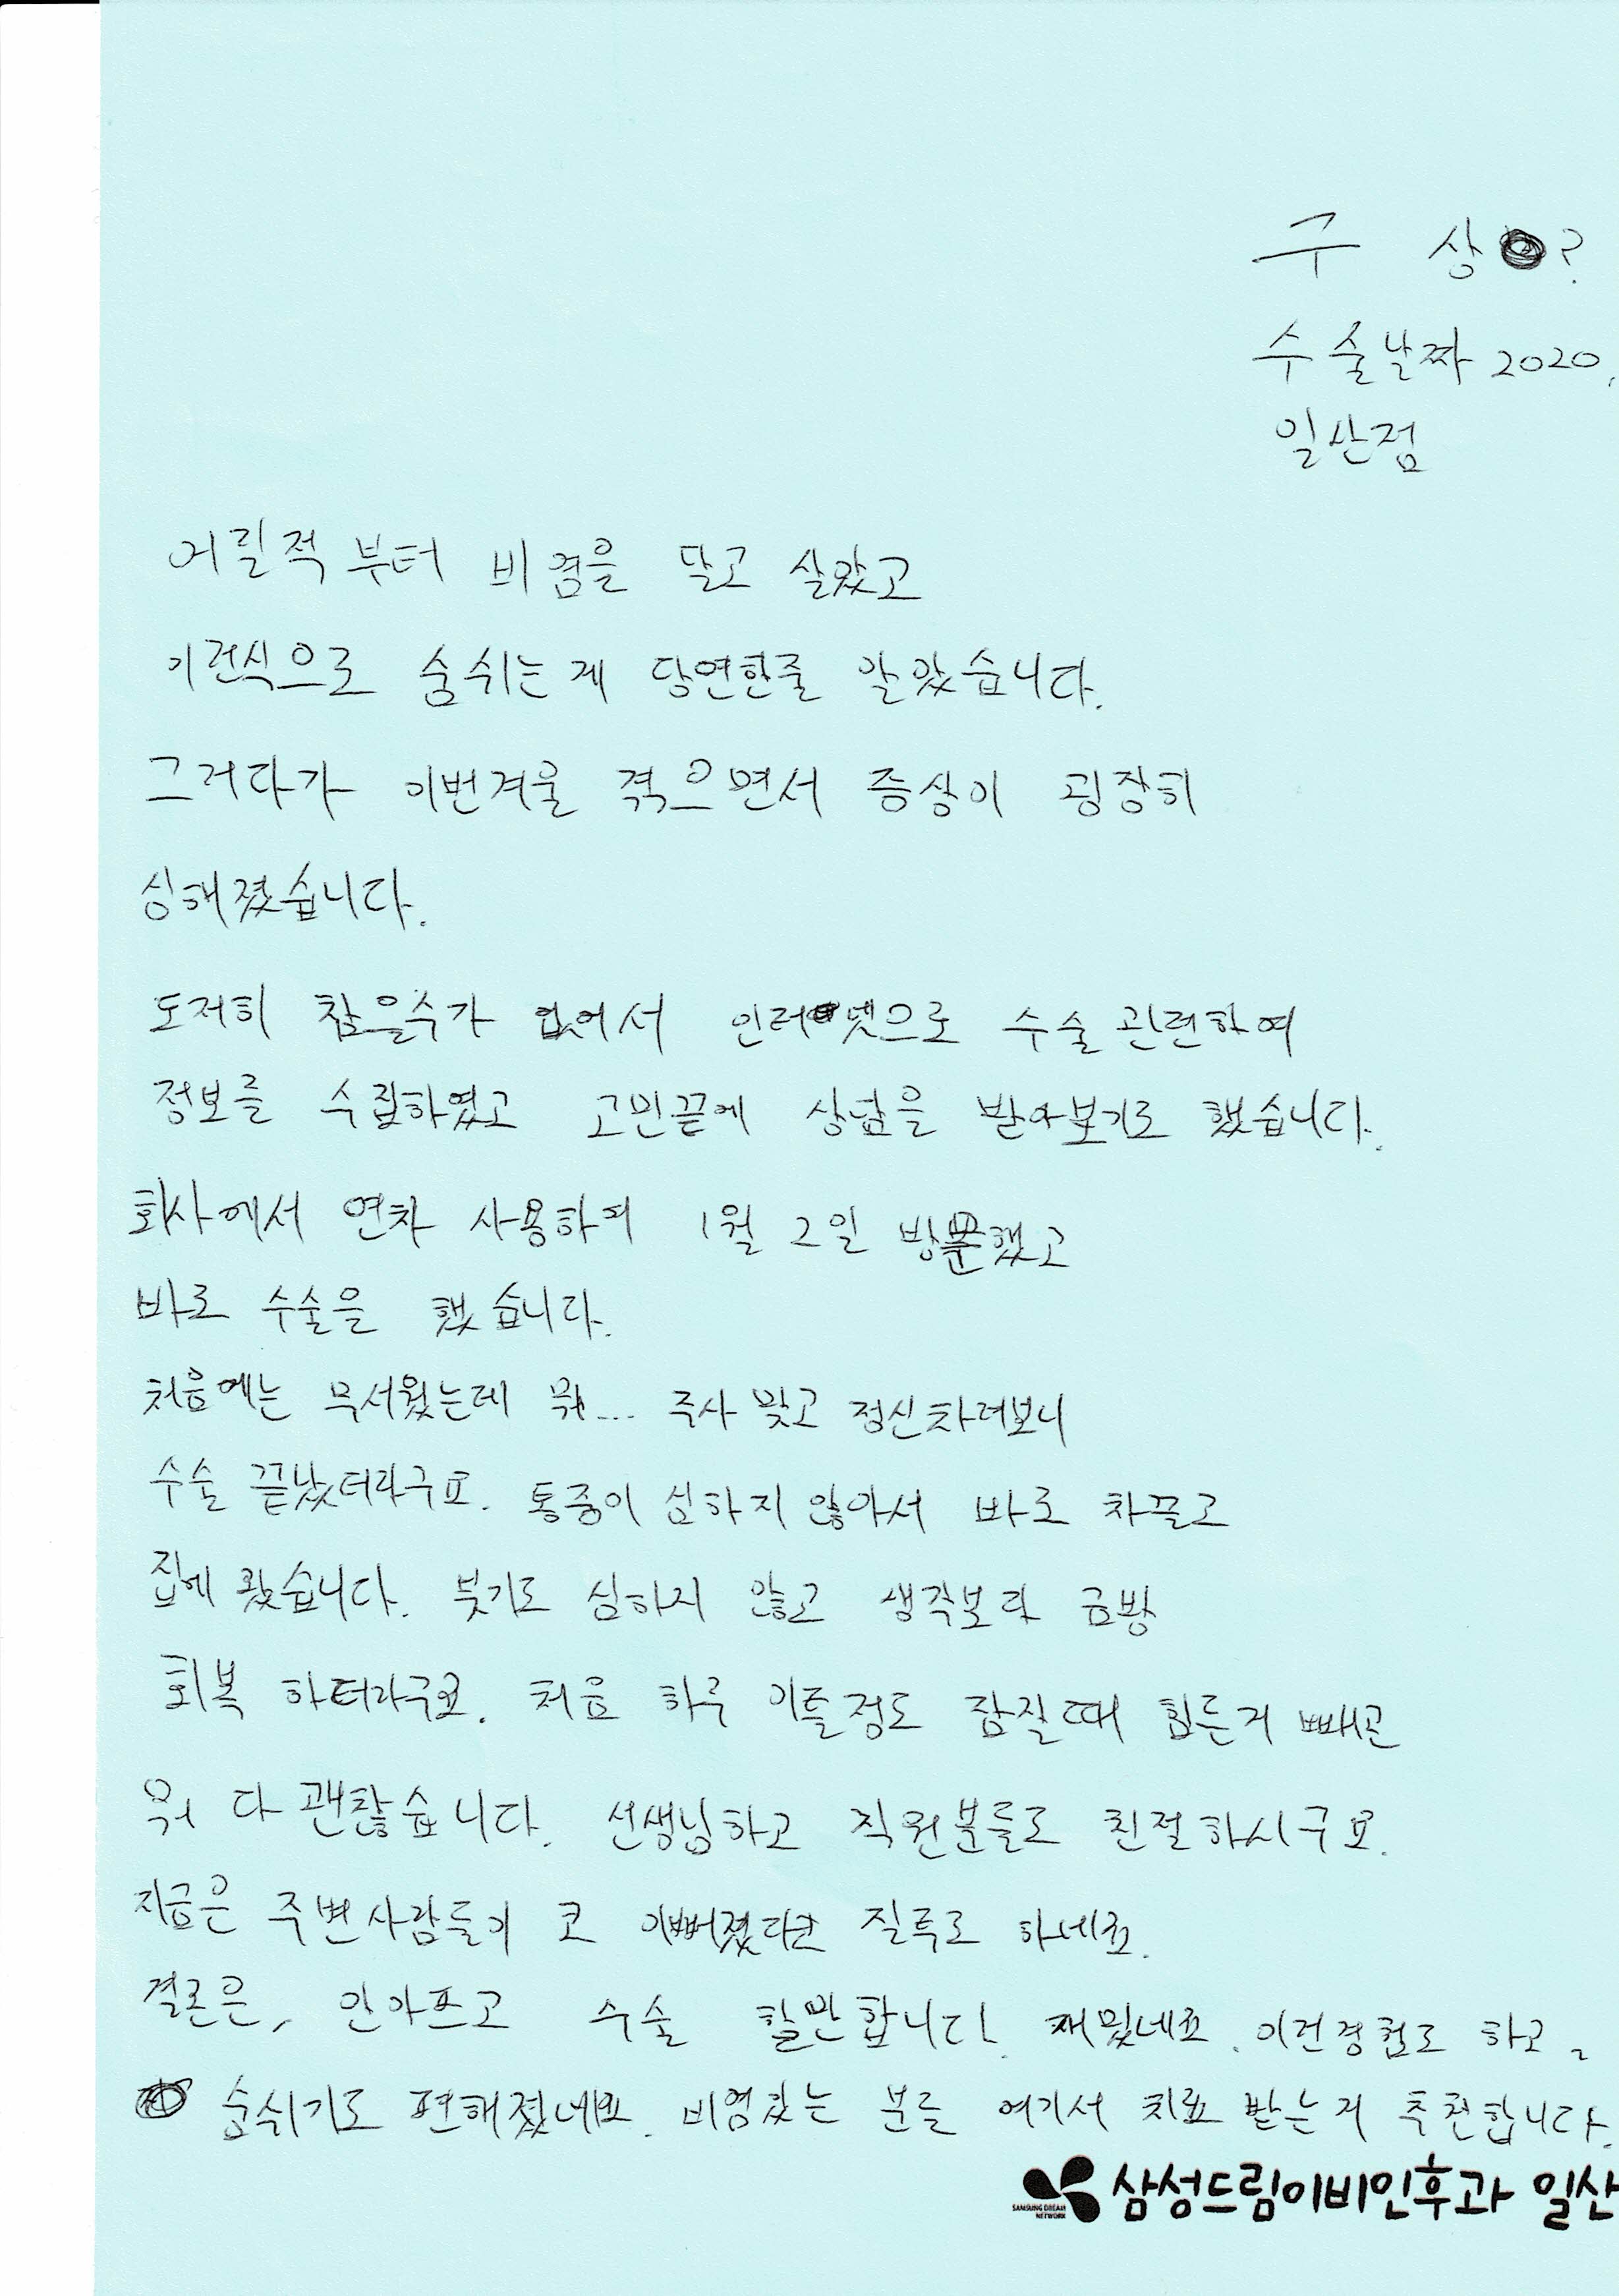 구 상 ?
수술날짜 2020.
일산점
어릴적 부터 비염을 달고 살았고
이런식으로 숨쉬는게 당연한줄 알았습니다.
그러다가 이번겨울 겪으면서 증상이 굉장히
심해졌습니다.
도저히 참을수가 없어서 인터넷으로 수술관련하여
정보를 수집하였고 고민끝에 상담을 받아보기로 했습니다.
회사에서 연차 사용하여 1월 2일 방문했고
바로 수술을 했습니다.
처음에는 무서웠는데 뭐... 주사 맞고 정신차려보니
수술 끝났더라구요. 통증이 심하지 않아서 바로 차끌고
집에 왔습니다. 붓기도 심하지 않고 생각보다 금방
회복 하더라구요. 처음 하루 이틀정도 잠잘때 힘든거 빼곤
뭐 다 괜찮습니다. 선생님하고 직원분들도 친절하시구요.
지금은 주변사람들이 코 이뻐졌다고 질투도 하네요.
결론은, 안아프고 수술 할만합니다. 재밌네요. 이런경험도 하고,
숨쉬기도 편해졌네요. 비염있는 분들 여기서 치료 받는거 추천합니다.
SAMSUNG DREAM NETWORK 삼성드림이비인후과 일산